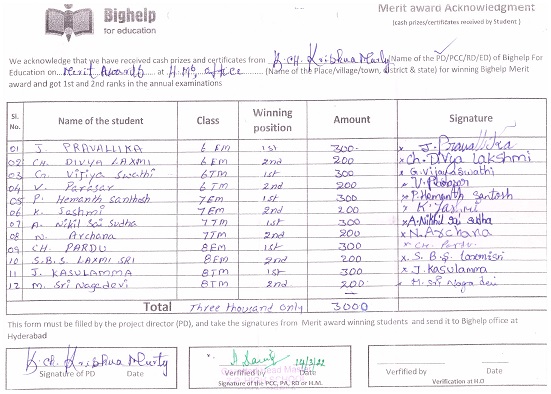 Bighelp
for education
Merit award Acknowledgment
(cash prizes/certificates received by Student )
We acknowledge that we have received cash prizes and certificates from K.CH. Krishna Murty (Name of the PD/PCC/RD/ED) of Bighelp For
Education on Merit Awards at H.M's office (Name of the Place/village/town, district & state) for winning Bighelp Merit
award and got 1st and 2nd ranks in the annual examinations
Sl. No. Name of the student Class Winning position Amount Signature
01 J. PRAVALLIKA 6 EM 1st 300 x J. Pravallika
02 CH. DIVYA LAXMI 6 EM 2nd 200 x CH. DIVYA Lakshmi
03 G. Vijiya Swathi 6TM 1st 300 x G. Vijayaswathi
04 V. Parasar 6TM 2nd 200 x V.
05 P. Hemanth Santhosh 7EM 1st 300 x P. Hemanth Santosh
06 K. Jashmi 7EM 2nd 200 K
07 A. Nikhil Sai Sudha 7TM 1st 300 x A. Nikhil Sai Sudha
08 N. Archana 7TM 2nd 200 x N. Archana
09 CH. PARDU 8EM 1st 300 x CH. Pardu.
10 S.B.S. LAXMI SRI 8EM 2nd 200 x S. B. S.
11 J. KASULAMMA 8TM 1st 300 x J. Kasulamma
12 M. Sri Nagadevi 8TM 2nd 200 x M. Sri Naga devi
Total Three thousand only 3000
This form must be filled by the project director (PD), and take the signatures from Merit award winning students and send it to Bighelp office at
Hyderabad
K.ch. Krishna Murty
Signature of PD Date
Verffified by Date
Signature of the PCC, PA, RD or H.M.
Verffified by Date
Verification at H.O